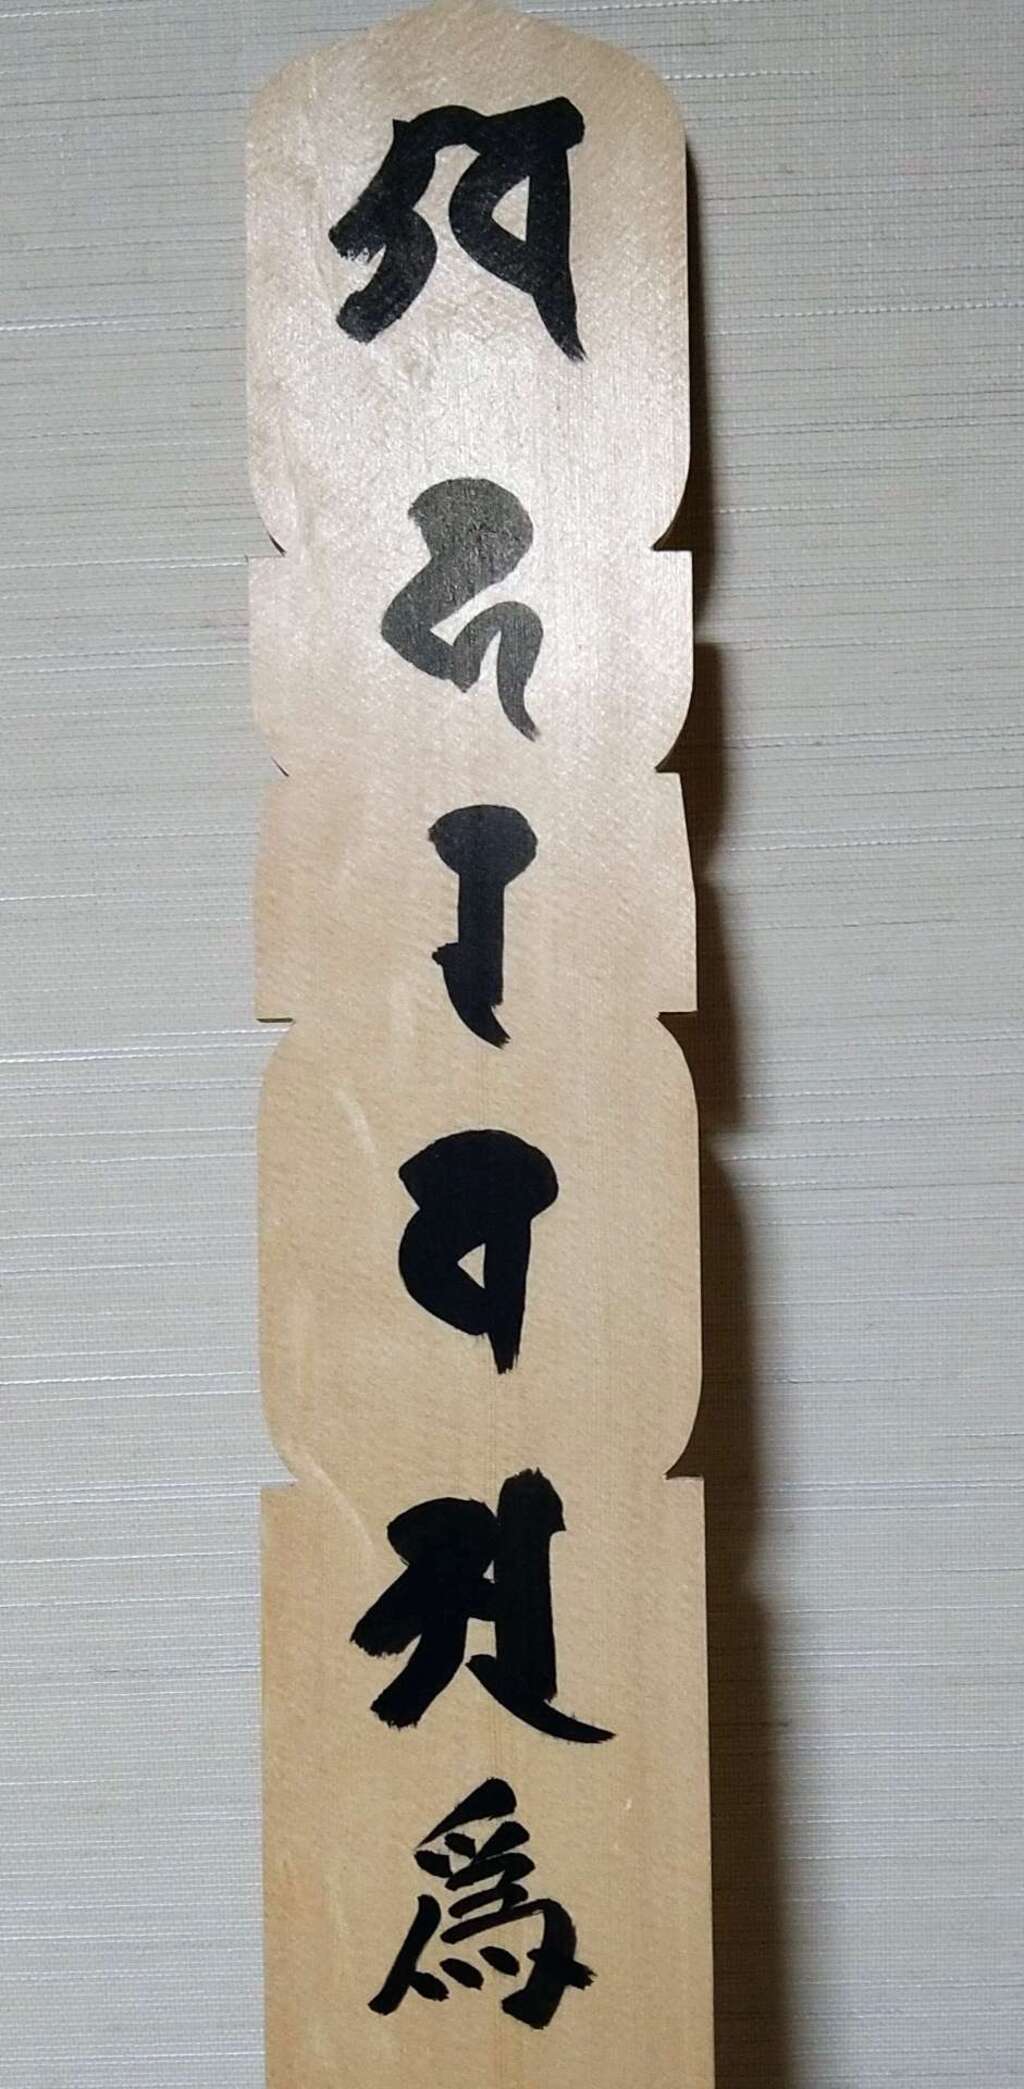 𑖏
𑖮
𑖨
𑖪
𑖀
爲